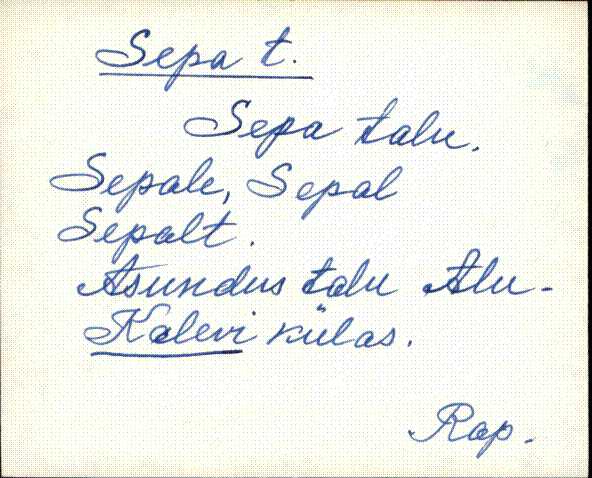 Sepa t.
Sepa talu.
Sepale, Sepal
Sepalt.
Asundus talu Alu-
Kalevi külas.
Rap.